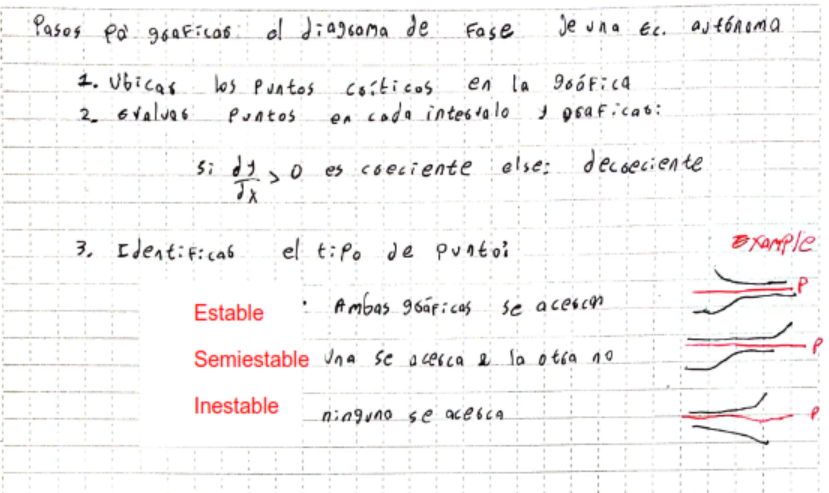 Pasos pa' graficar el diagrama de Fase de una Ec. autónoma
1. Ubicar los Puntos críticos en la gráfica
2. evaluar Puntos en cada intervalo y graficar:
si dy/dx > 0 es creciente else: decreciente
3. Identificar el tipo de punto:
EXAMPLE
Estable : Ambas gráficas se acercan P
Semiestable Una se acerca & la otra no P
Inestable ninguno se acerca P